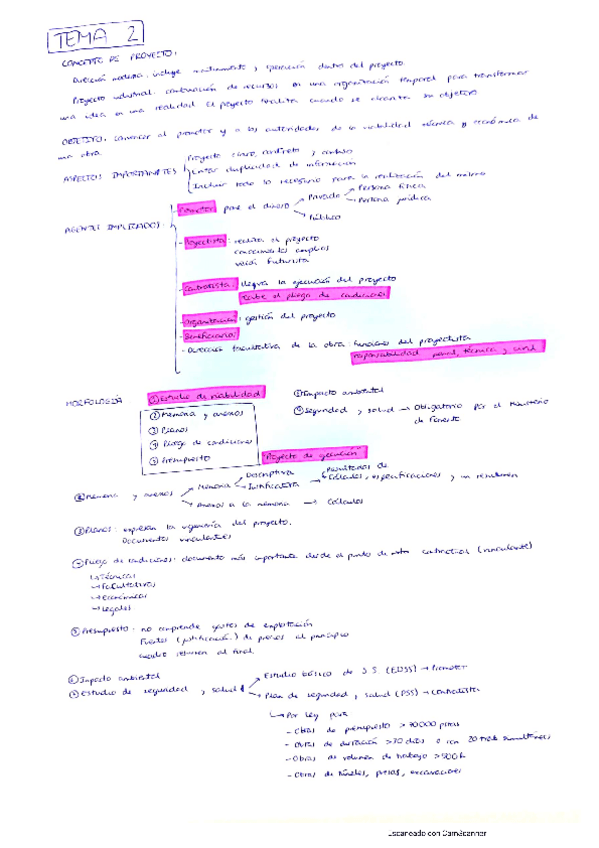 TEMA 2
CONCEPTO DE PROYECTO:
Dirección moderna: incluye mantenimiento y ejecución dentro del proyecto
Proyecto industrial: combinación de recursos en una organización temporal para transformar
una idea en una realidad. El proyecto finaliza cuando se alcanza su objetivo
OBJETIVO: convencer al promotor y a las autoridades de la viabilidad técnica y económica de
una obra.
ASPECTOS IMPORTANTES
Proyecto claro, concreto y conciso
Evitar duplicidad de información
Incluir todo lo necesario para la realización del mismo
AGENTES IMPLICADOS:
- Promotor: pone el dinero → Privado → Persona física
→ Persona jurídica
→ Público
- Proyectista: realiza el proyecto
conocimientos amplios
visión futurista
- Contratista: llevar la ejecución del proyecto
recibe el pliego de condiciones
- Organización: gestión del proyecto
- Beneficiario:
- Dirección facultativa de la obra: funciones del proyectista
responsabilidad penal, técnica y civil
MORFOLOGÍA
① Estudio de viabilidad
② Memoria y anexos
③ Planos
④ Pliego de condiciones
⑤ Presupuesto
Proyecto de ejecución
⑥ Impacto ambiental
⑦ Seguridad y salud → Obligatorio por el ministerio
de Fomento
② Memoria y anexos → Memoria → Descriptiva
→ Justificativa → Resultados de
cálculos, especificaciones y un resumen
→ Anexos a la memoria → Cálculos
③ Planos: expresan la ingeniería del proyecto.
Documentos vinculantes
④ Pliego de condiciones: documento más importante desde el punto de vista contractual (vinculante)
↳ Técnicas
→ Facultativas
→ Económicas
→ Legales
⑤ Presupuesto: no comprende gastos de explotación
Fuentes (justificación) de precios al principio
Cuadro resumen al final.
⑥ Impacto ambiental
⑦ Estudio de seguridad y salud → Estudio básico de S.S. (EDSS) → Promotor
→ Plan de seguridad y salud (PSS) → Contratista
↳ Por ley para
- Obras de presupuesto
- Obras de duración > 30 días o con 20 trab. simultáneos
- Obras de volumen de trabajo > 500 h
- Obras de túneles, presas, excavaciones
Escaneado con CamScanner